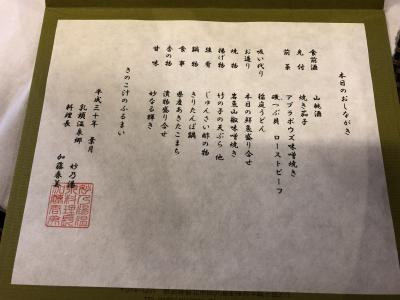 本日のおしながき
食前酒 山桃酒
先付 焼き茄子
前菜 アブラボウズ味噌焼き
磯つぶ貝 ローストビーフ
吸い代り 稲庭うどん
お造り 本日の鮮魚盛り合せ
焼物 岩魚山椒味噌焼き
揚げ物 竹の子の天ぷら 他
強肴 じゅんさい酢の物
鍋物 きりたんぽ鍋
食事 県産あきたこまち
香の物 漬物盛り合せ
甘味 妙なる輝き
きのこ汁のふるまい
平成三十年 葉月
乳頭温泉郷 妙乃湯
料理長 加藤春美